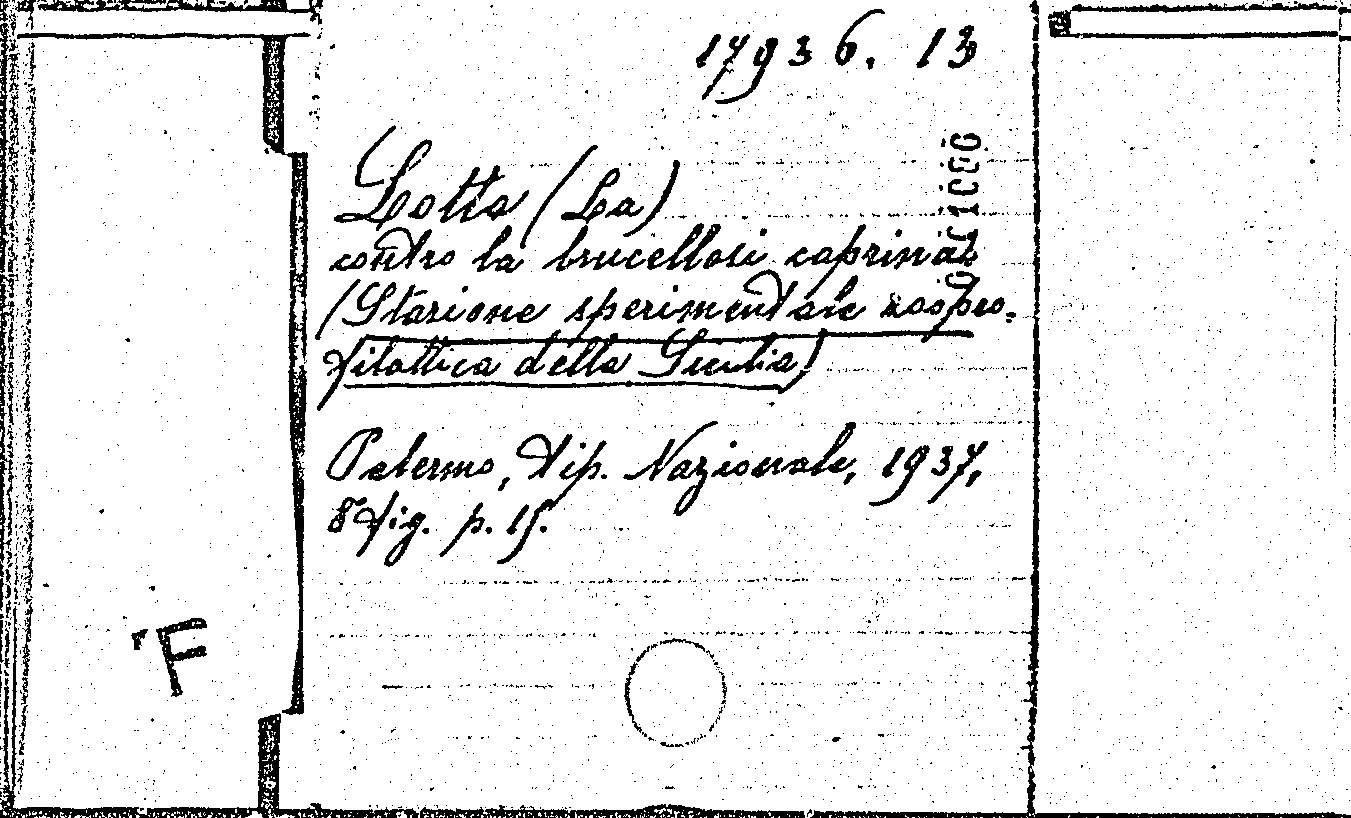 17936. 13
Lotta (La)
contro la brucellosi caprina
(Stazione sperimentale zoopro-
filattica della Sicilia)
Palermo, Tip. Nazionale, 1937,
8° fig. p. 15.
F